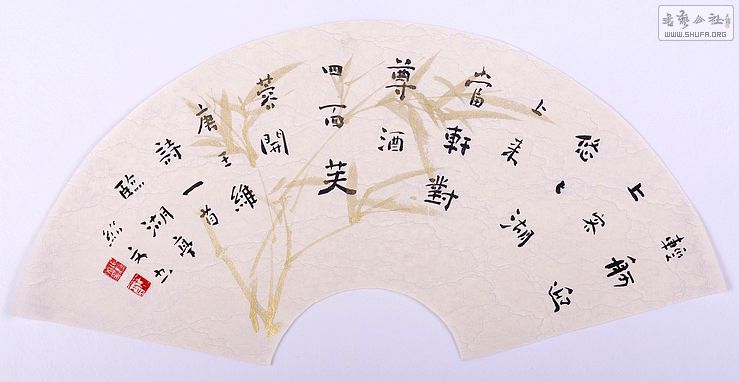 輕舸迎
上客
悠〻湖
上來
當軒對
尊酒
四面芙
蓉開
唐王維
詩一首
臨湖亭
文书
書藝公社
WWW.SHUFA.ORG